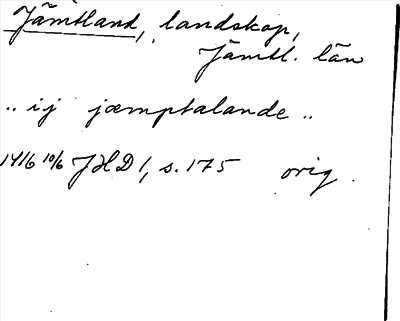 Jämtland, landskap,
Jämtl. län
.. i j jæmptalande ..
1416 10/6 JHD 1, s. 175 orig.